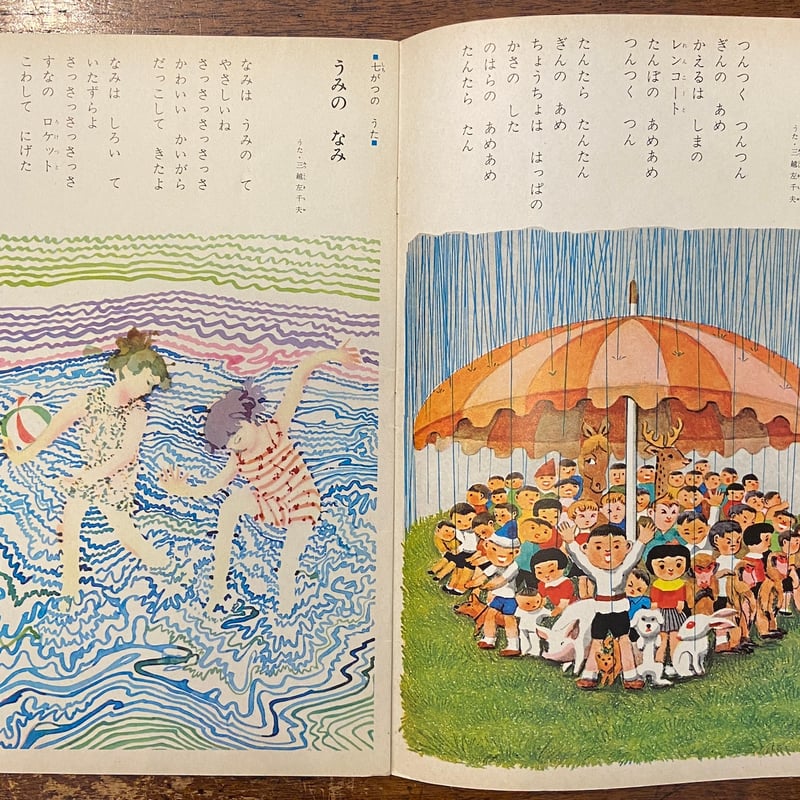 うた・三越左千夫
つんつく つんつん
ぎんの あめ
かえるは しまの
レンコート
たんぼの あめあめ
つんつく つん
たんたら たんたん
ぎんの あめ
ちょうちょは はっぱの
かさの した
のはらの あめあめ
たんたら たん
■七がつの うた■
うみの なみ
うた・三越左千夫
なみは うみの て
やさしいね
さっさっさっさっさ
かわいい かいがら
だっこして きたよ
なみは しろい て
いたずらよ
さっさっさっさっさ
すなの ロケット
こわして にげた